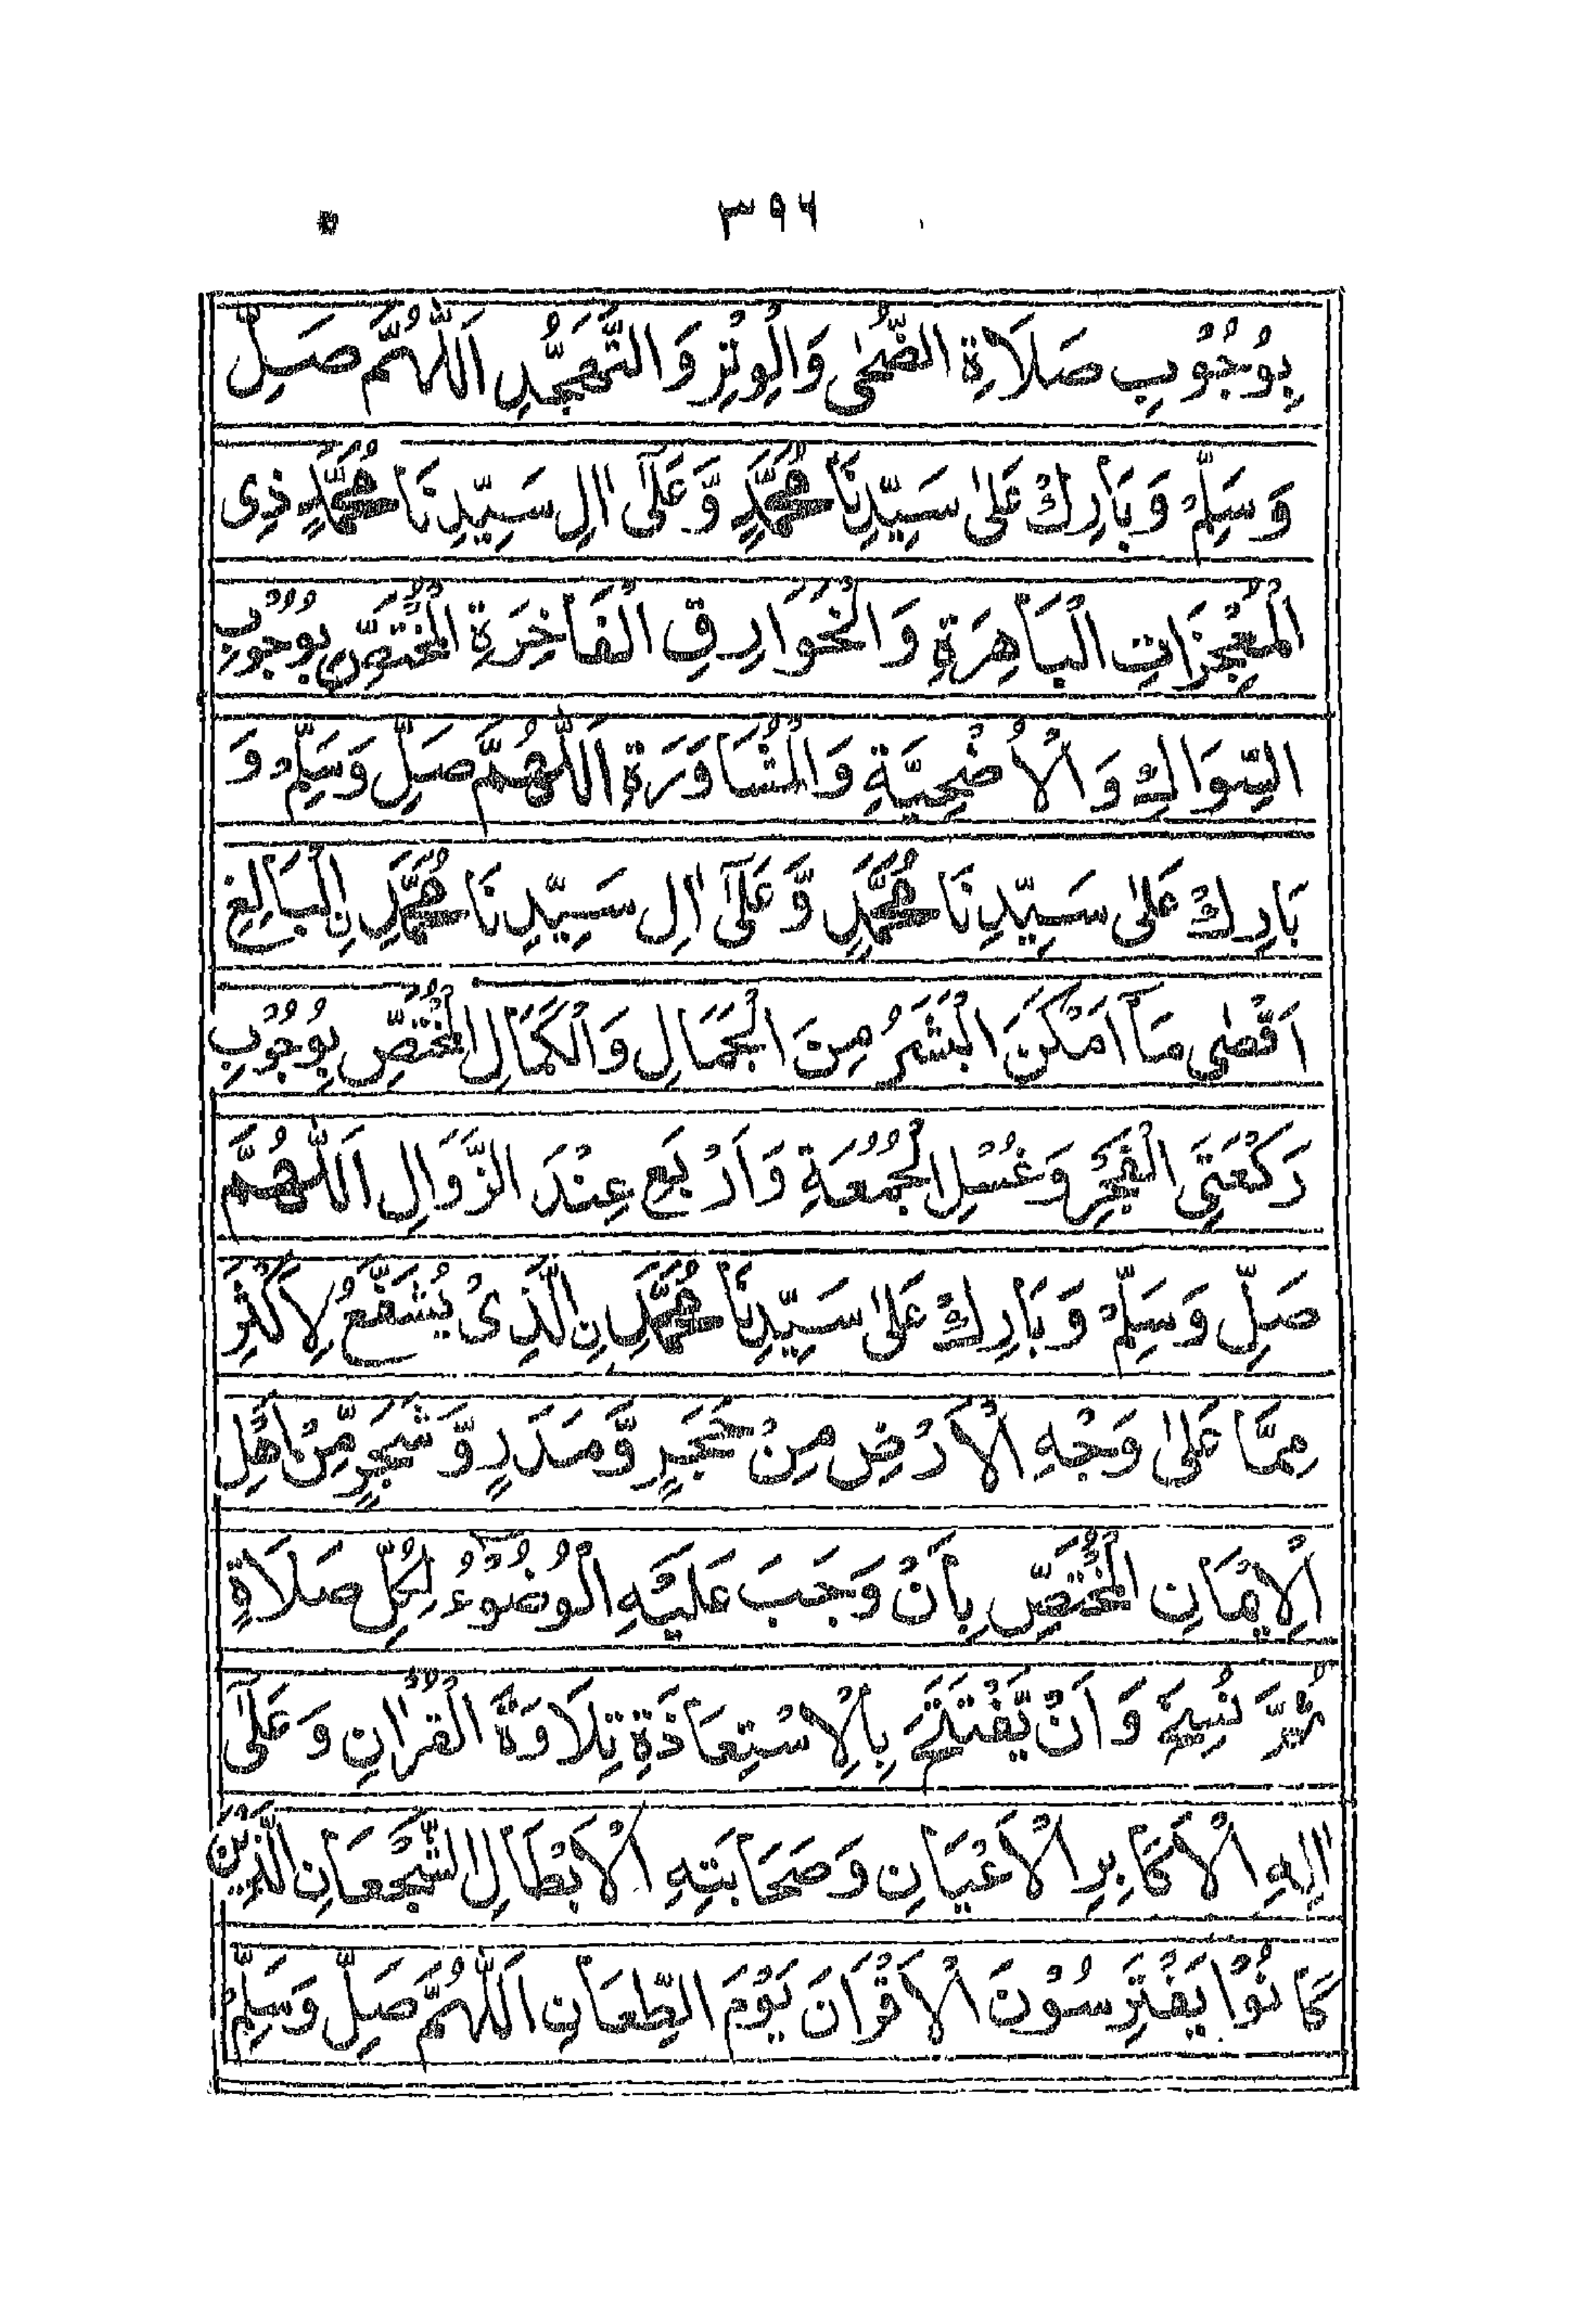 ٣٩٦
بِوُجُوْبِ صَلَاةِ الضُّحٰى وَالْوِتْرِ وَ التَّهَجُّدِ اَللّٰهُمَّ صَلِّ
وَ سَلِّمْ وَ بَارِكْ عَلٰى سَيِّدِنَا مُحَمَّدٍ وَّ عَلٰٓى اٰلِ سَيِّدِنَا مُحَمَّدٍ ذِى
الْمُعْجِزَاتِ الْبَاهِرَةِ وَ الْخَوَارِقِ الْفَاخِرَةِ الْمُخْتَصِّ بِوُجُوْبِ
السِّوَاكِ وَ الْاُضْحِيَّةِ وَ الْمُشَاوَرَةِ اَللّٰهُمَّ صَلِّ وَ سَلِّمْ وَ
بَارِكْ عَلٰى سَيِّدِنَا مُحَمَّدٍ وَّ عَلٰٓى اٰلِ سَيِّدِنَا مُحَمَّدِ نِ الْبَالِغِ
اَقْصٰى مَآ اَمْكَنَ الْبَشَرُ مِنَ الْجَمَالِ وَ الْكَمَالِ الْمُخْتَصِّ بِوُجُوْبِ
رَكْعَتَىِ الْفَجْرِ وَ غُسْلِ الْجُمُعَةِ وَ اَرْبَعٍ عِنْدَ الزَّوَالِ اَللّٰهُمَّ
صَلِّ وَ سَلِّمْ وَ بَارِكْ عَلٰى سَيِّدِنَا مُحَمَّدِ نِ الَّذِىْ يُشَفَّعُ لِاَكْثَرَ
مِمَّا عَلٰى وَجْهِ الْاَرْضِ مِنْ حَجَرٍ وَّ مَدَرٍ وَّ شَجَرٍ مِّنْ اَهْلِ
الْاِيْمَانِ الْمُخْتَصِّ بِاَنْ وَجَبَ عَلَيْهِ الْوُضُوْٓءُ لِكُلِّ صَلَاةٍ
ثُمَّ نُسِخَ وَ اَنْ يَّفْتَتِحَ بِالْاِسْتِعَاذَةِ تِلَاوَةَ الْقُرْاٰنِ وَ عَلٰٓى
اٰلِهِ الْاَكَابِرِ الْاَعْيَانِ وَ صَحَابَتِهِ الْاَبْطَالِ الشُّجْعَانِ الَّذِيْنَ
كَانُوْا يَفْتَرِسُوْنَ الْاَقْرَانَ يَوْمَ الطِّعَانِ اَللّٰهُمَّ صَلِّ وَ سَلِّمْ